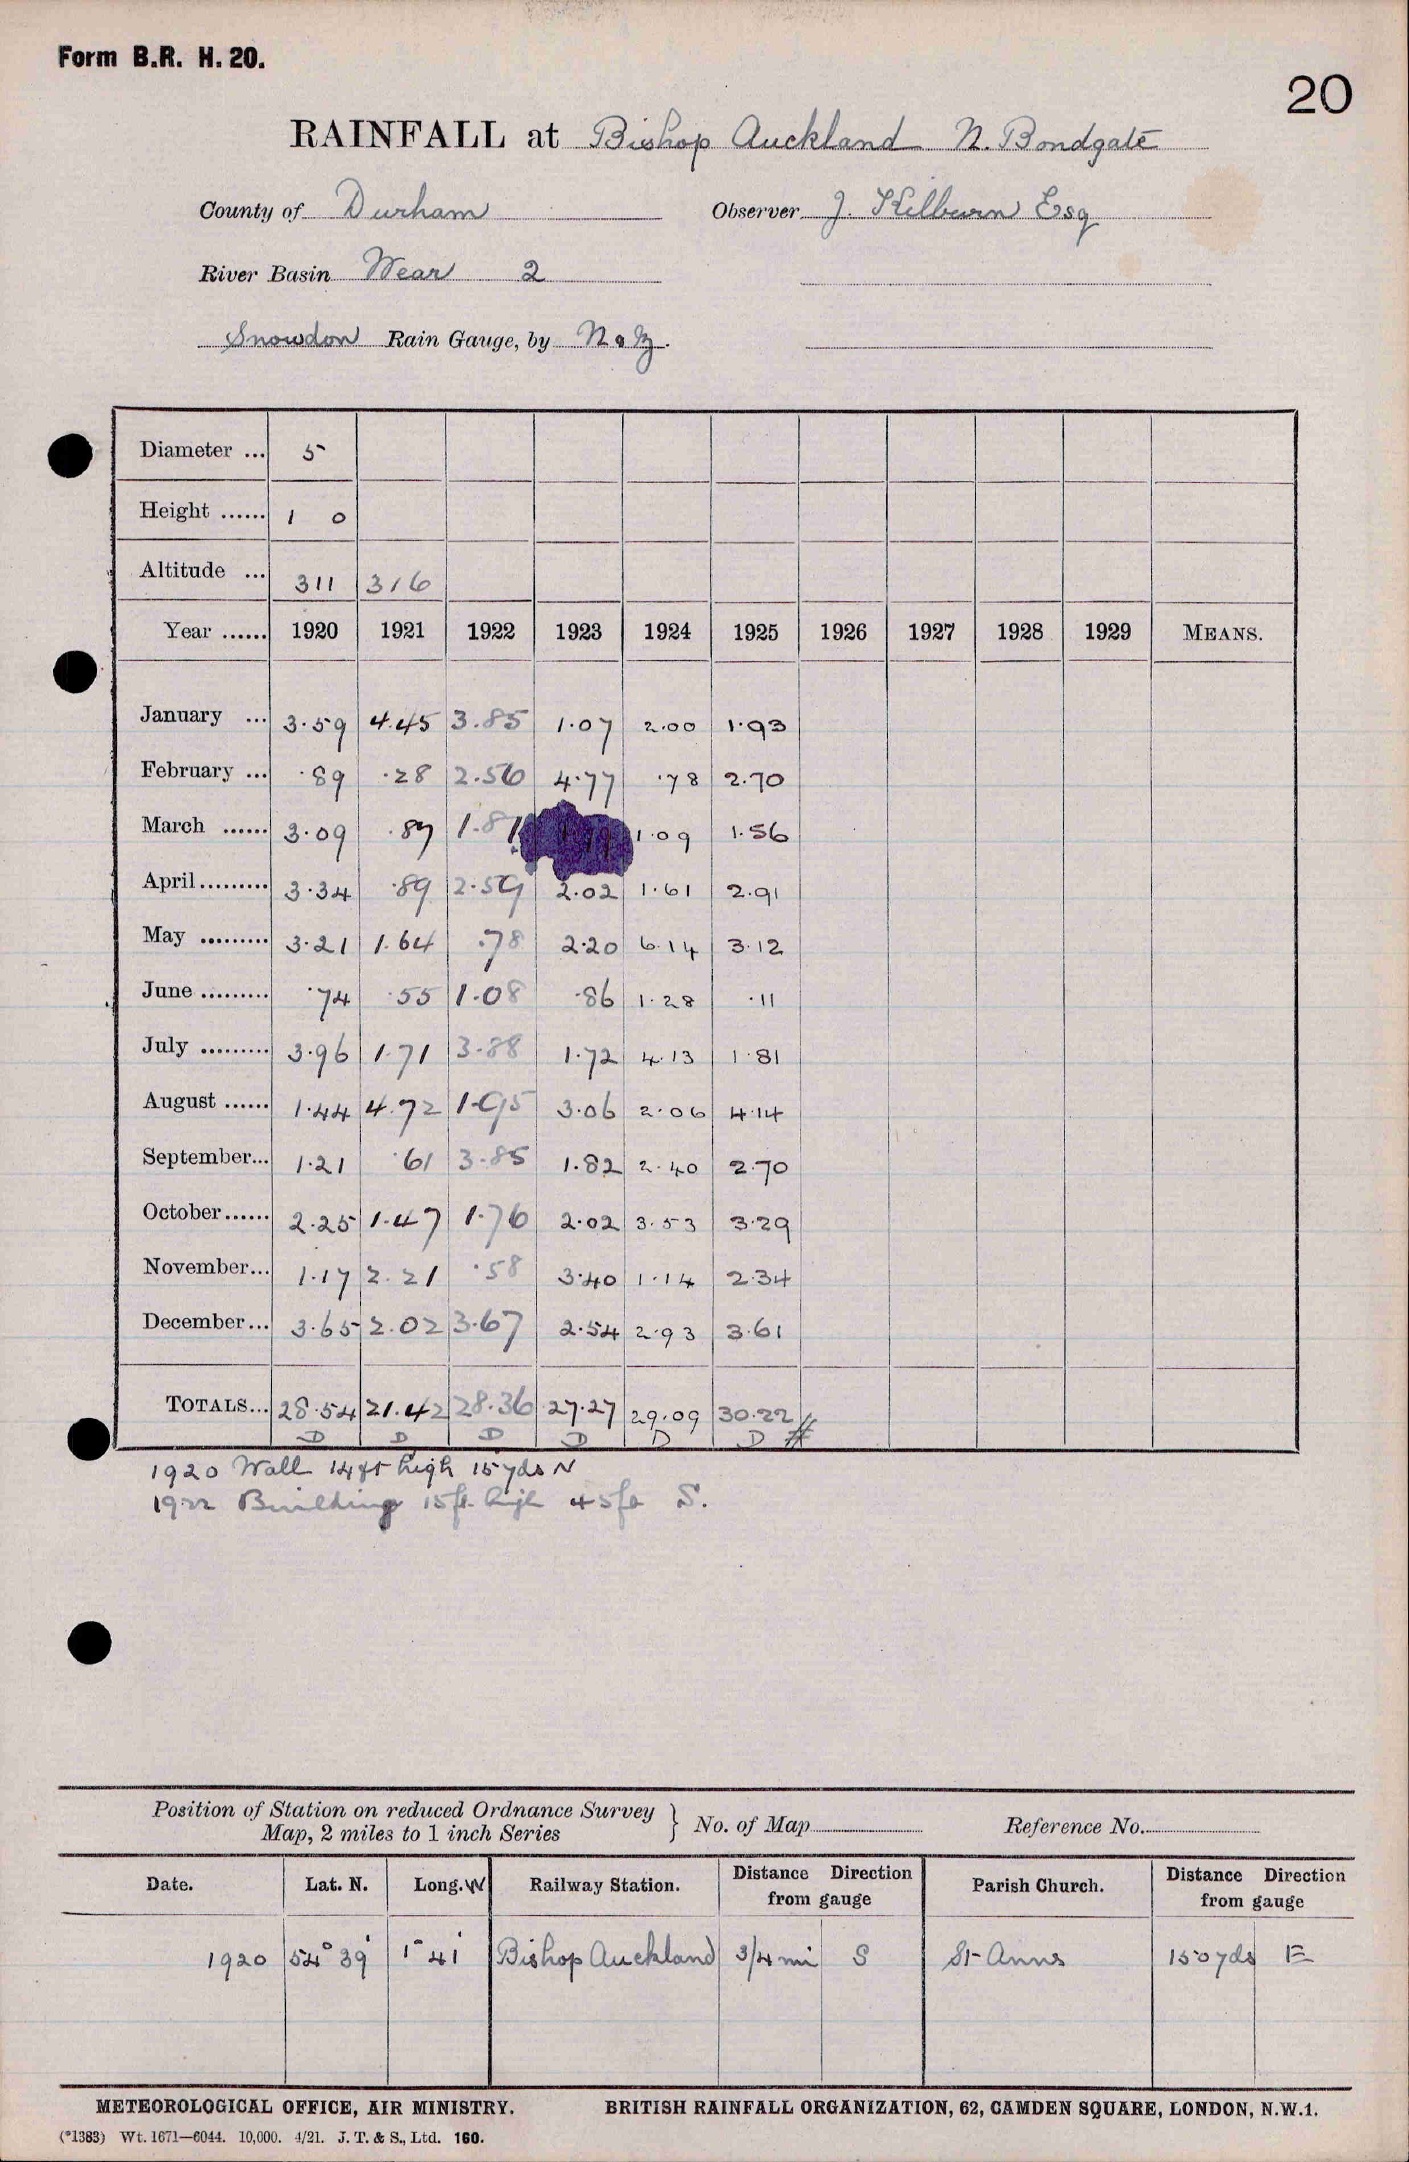 Form B.R. H. 20.
20
RAINFALL at Bishop Auckland N. Bondgate
County of Durham Observer J. Kilburn Esq
River Basin Wear 2
Snowdon Rain Gauge, by N & Z.
Diameter ... 5
Height ...... 1 0
Altitude ... 311 316
Year ...... 1920 1921 1922 1923 1924 1925 1926 1927 1928 1929 MEANS.
January ... 3.59 4.45 3.85 1.07 2.00 1.93
February ... .89 .28 2.56 4.77 .78 2.70
March ...... 3.09 .87 1.81 1.79 1.09 1.56
April ......... 3.34 .89 2.59 2.02 1.61 2.91
May ......... 3.21 1.64 .78 2.20 6.14 3.12
June ......... .74 .55 1.08 .86 1.28 .11
July ......... 3.96 1.71 3.88 1.72 4.13 1.81
August ...... 1.44 4.72 1.95 3.06 2.06 4.14
September... 1.21 .61 3.85 1.82 2.40 2.70
October ...... 2.25 1.47 1.76 2.02 3.53 3.29
November... 1.17 2.21 .58 3.40 1.14 2.34
December... 3.65 2.02 3.67 2.54 2.93 3.61
TOTALS... 28.54 21.42 28.36 27.27 29.09 30.22 //
D D D D D D #
1920 Wall 14ft high 15yds N
1922 Building 15ft. high 45ft S.
Position of Station on reduced Ordnance Survey
Map, 2 miles to 1 inch Series } No. of Map Reference No.
Date. Lat. N. Long. W Railway Station. Distance Direction from gauge Parish Church. Distance Direction from gauge
1920 54° 39' 1° 41' Bishop Auckland 3/4 mi S St Anns 150yds E
METEOROLOGICAL OFFICE, AIR MINISTRY. BRITISH RAINFALL ORGANIZATION, 62, CAMDEN SQUARE, LONDON, N.W.1.
(*1383) Wt. 1671—6044. 10,000. 4/21. J. T. & S., Ltd. 160.